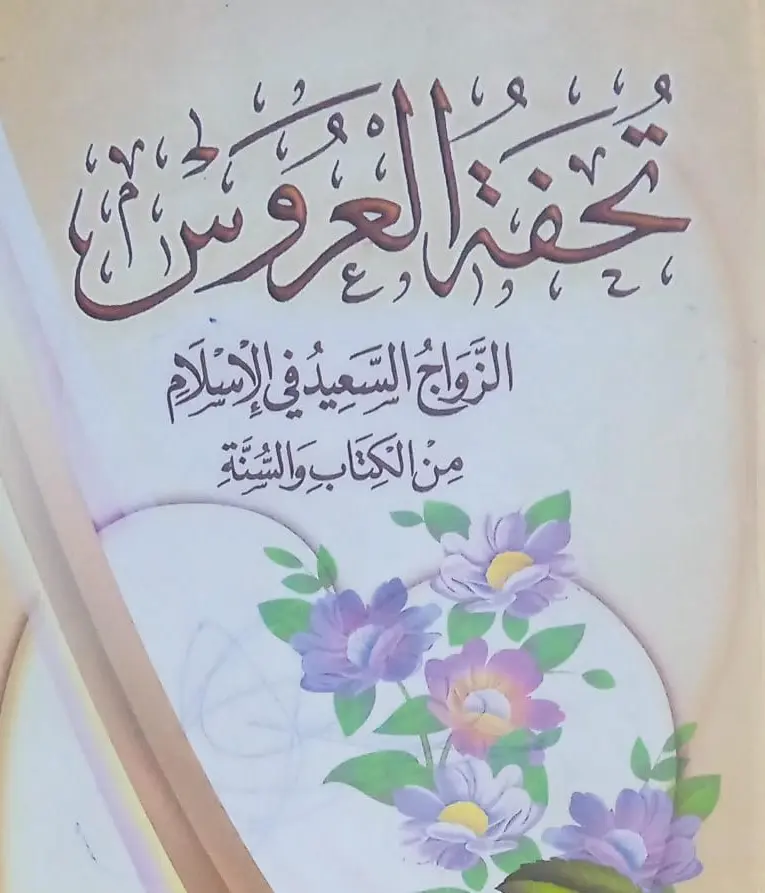 تُحْفَةُ العَرُوسِ
الزَّوَاجُ السَّعِيدُ فِي الإِسْلَامِ
مِنَ الكِتَابِ وَالسُّنَّةِ